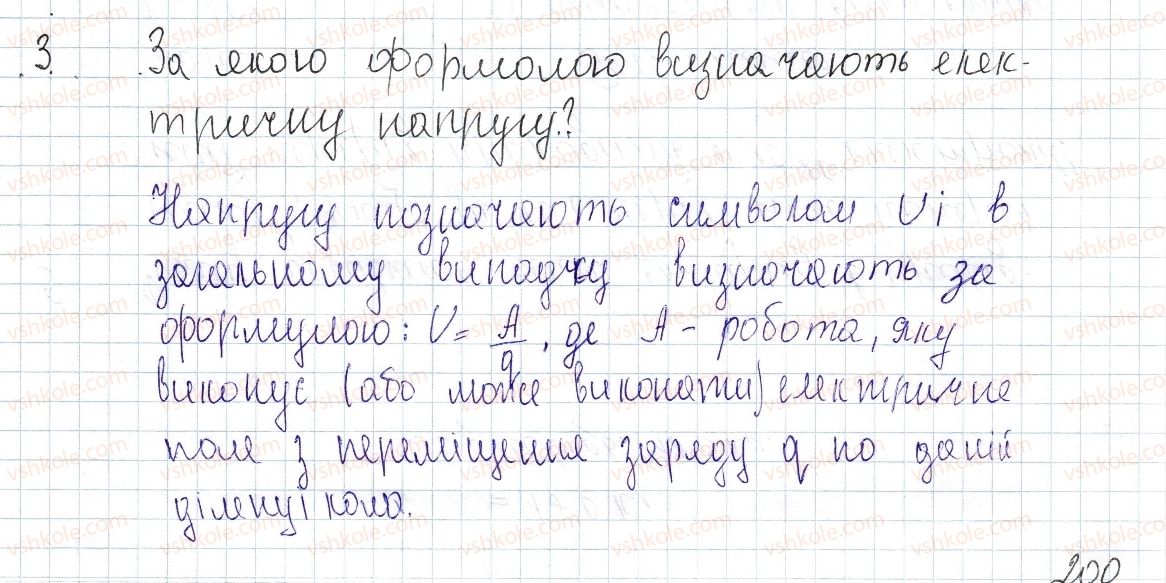 3. За якого формолою визначають елек-
тричну напругу?
Напругу позначають символом U і в
загальному випадку визначають за
формулою: U = A/q, де A - робота, яку
виконує (або може виконати) електричне
поле з переміщення заряду q по даній
ділянці кола.
200